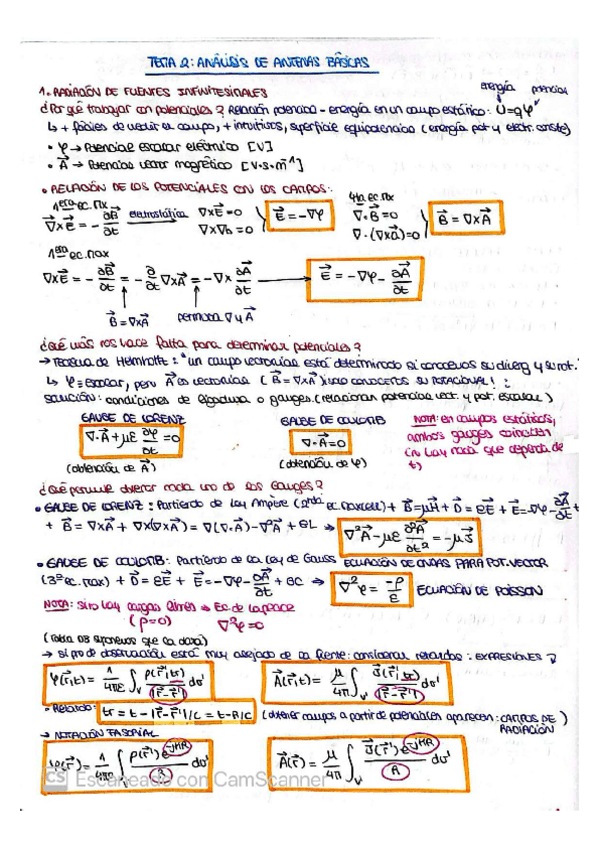 TEMA 2: ANÁLISIS DE ANTENAS BÁSICAS
1. RADIACIÓN DE FUENTES INFINITESIMALES
energía potencial
¿Por qué trabajar con potenciales? Relación potencial - energía en un campo estático: U=qφ
↳ + fáciles de medir el campo, + intuitivos, superficie equipotencial (energía pot y electr. constte)
• φ → Potencial escalar eléctrico [V]
• A⃗ → Potencial vector magnético [V·s·m⁻¹]
• RELACIÓN DE LOS POTENCIALES CON LOS CAMPOS:
1era ec. Mx
∇×E⃗ = -∂B⃗/∂t electrostática ∇×E=0 ∇×∇φ=0 E⃗ = -∇φ
4ta ec. Mx
∇·B⃗=0 ∇·(∇×A⃗)=0 B⃗ = ∇×A⃗
1era ec. max
∇×E = -∂B⃗/∂t = -∂/∂t ∇×A⃗ = -∇× ∂A⃗/∂t → E⃗ = -∇φ - ∂A⃗/∂t
B⃗ = ∇×A⃗ permuta ∇ y A⃗
¿Qué más nos hace falta para determinar potenciales?
→ Teorema de Helmholtz: "un campo vectorial está determinado si conocemos su diverg y su rot."
↳ φ = escalar, pero A⃗ es vectorial (B⃗ = ∇×A⃗) ¡solo conocemos su rotacional!:
SOLUCIÓN: condiciones de ligadura o gauges (relacionan potencial vect. y pot. escalar)
GAUGE DE LORENZ GAUGE DE COULOMB NOTA: en campos estáticos,
∇·A⃗ + με ∂φ/∂t = 0 ∇·A⃗ = 0 ambos gauges coinciden
(no hay nada que dependa de
(obtención de A⃗) (obtención de φ) t)
¿Qué permite obtener cada uno de los Gauges?
• GAUGE DE LORENZ: Partiendo de Ley Ampère (2nda ec. Maxwell) + B⃗=μH⃗ + D⃗ = εE⃗ + E⃗=-∇φ-∂A⃗/∂t +
+ B⃗ = ∇×A⃗ + ∇×(∇×A⃗) = ∇(∇·A⃗) - ∇²A⃗ + GL ⇒ ∇²A⃗ - με ∂²A⃗/∂t² = -μJ⃗
• GAUGE DE COULOMB: Partiendo de la Ley de Gauss ECUACIÓN DE ONDAS PARA POT. VECTOR
(3ª ec. max) + D⃗ = εE⃗ + E⃗ = -∇φ - ∂A⃗/∂t + GC ⇒ ∇²φ = -ρ/ε ECUACIÓN DE POISSON
NOTA: si no hay cargas libres ⇒ Ec de Laplace
(ρ=0) ∇²φ=0
→ si pto de observación está muy alejado de la fuente: considerar retardos: EXPRESIONES
φ(r⃗,t) = 1/4πε ∫v ρ(r⃗',tr)/|r⃗-r⃗'| dv' A⃗(r⃗,t) = μ/4π ∫v J⃗(r⃗',tr)/|r⃗-r⃗'| dv'
• Retardo: tr = t - |r⃗-r⃗'|/c = t-R/c (obtener campos a partir de potenciales aparecen: CAMPOS DE RADIACIÓN)
→ NOTACIÓN FASORIAL
φ(r⃗) = 1/4πε ∫v ρ(r⃗')e^-jkR/R dv' A⃗(r⃗) = μ/4π ∫v J⃗(r⃗')e^-jkR/R dv'
CS Escaneado con CamScanner